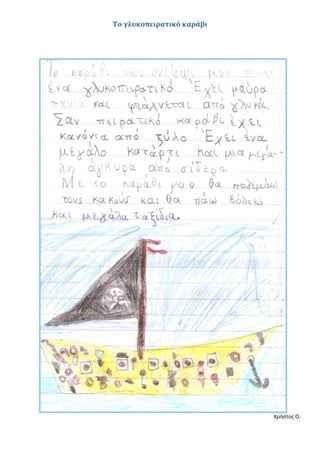 Το γλυκοπειρατικό καράβι
Το καράβι των ονείρων μου είναι
ένα γλυκοπειρατικό. Έχει μαύρα
πανιά και φτιάχνεται από γλυκά.
Σαν πειρατικό καράβι έχει
κανόνια από ξύλο. Έχει ένα
μεγάλο κατάρτι και μια μεγά-
λη άγκυρα από σίδερο.
Με το καράβι μου θα πολεμάω
τους κακούς και θα πάω βόλτες
και μεγάλα ταξίδια.
Χρήστος Ο.